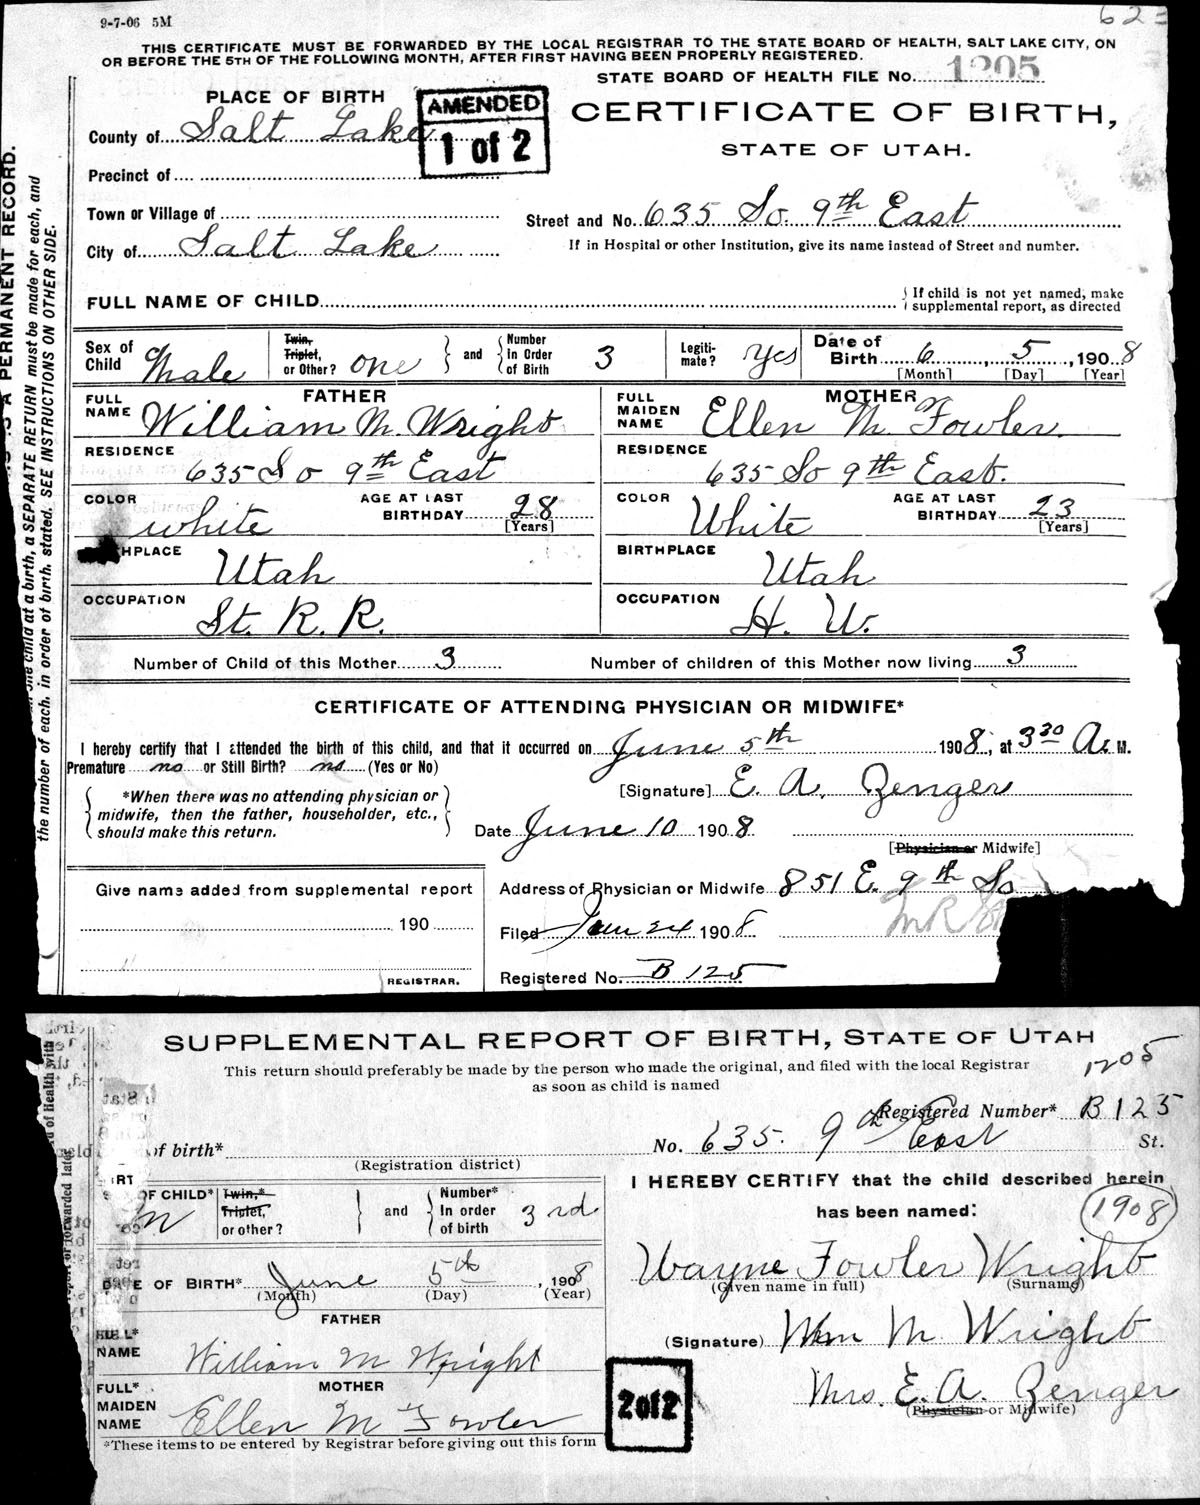 9-7-06 5M
62
THIS CERTIFICATE MUST BE FORWARDED BY THE LOCAL REGISTRAR TO THE STATE BOARD OF HEALTH, SALT LAKE CITY, ON
OR BEFORE THE 5TH OF THE FOLLOWING MONTH, AFTER FIRST HAVING BEEN PROPERLY REGISTERED.
STATE BOARD OF HEALTH FILE No. 1205
PLACE OF BIRTH
AMENDED
1 of 2
CERTIFICATE OF BIRTH,
STATE OF UTAH.
County of Salt Lake
Precinct of
Town or Village of
Street and No. 635 So. 9th East
City of Salt Lake
If in Hospital or other Institution, give its name instead of Street and number.
FULL NAME OF CHILD
If child is not yet named, make
supplemental report, as directed
Sex of Child Male
Twin, Triplet, or Other? one
and
Number In Order of Birth 3
Legiti-mate? Yes
Date of Birth 6, 5, 1908
[Month] [Day] [Year]
FATHER
MOTHER
FULL NAME William M. Wright
FULL MAIDEN NAME Ellen M. Fowler.
RESIDENCE 635 So 9th East
RESIDENCE 635 So 9th East.
COLOR white
AGE AT LAST BIRTHDAY 28 [Years]
COLOR White
AGE AT LAST BIRTHDAY 23 [Years]
HPLACE Utah
BIRTHPLACE Utah
OCCUPATION St. R. R.
OCCUPATION H. W.
Number of Child of this Mother 3
Number of children of this Mother now living 3
CERTIFICATE OF ATTENDING PHYSICIAN OR MIDWIFE*
I hereby certify that I attended the birth of this child, and that it occurred on June 5th 1908, at 3 30 A. M.
Premature no or Still Birth? no (Yes or No)
[Signature] E. A. Zenger
*When there was no attending physician or
midwife, then the father, householder, etc.,
should make this return.
Date June 10 1908
[Physician or Midwife]
Give name added from supplemental report
Address of Physician or Midwife 851 E. 9th So
190
Filed Jun 24 1908
REGISTRAR.
Registered No. B 125
A PERMANENT RECORD.
one child at a birth, a SEPARATE RETURN must be made for each, and
the number of each, in order of birth, stated. SEE INSTRUCTIONS ON OTHER SIDE.
SUPPLEMENTAL REPORT OF BIRTH, STATE OF UTAH
1205
This return should preferably be made by the person who made the original, and filed with the local Registrar
as soon as child is named
Registered Number* B 125
of birth*
(Registration district)
No. 635. 9th East St.
OF CHILD* M
Twin,* Triplet, or other?
and
Number* In order of birth 3rd
I HEREBY CERTIFY that the child described herein
has been named:
1908
DATE OF BIRTH* June 5th, 1908
(Month) (Day) (Year)
Wayne Fowler Wright
(Given name in full) (Surname)
FATHER
FULL* NAME William M Wright
(Signature) Wm M. Wright
MOTHER
FULL* MAIDEN NAME Ellen M Fowler
2 of 2
Mrs. E. A. Zenger
(Physician or Midwife)
*These items to be entered by Registrar before giving out this form